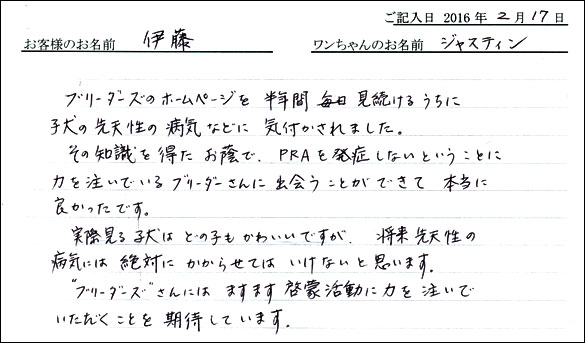 ご記入日 2016年2月17日
お客様のお名前 伊藤 ワンちゃんのお名前 ジャスティン
ブリーダーズのホームページを 半年間 毎日 見続けるうちに
子犬の先天性の病気などに 気付かされました。
その知識を得たお蔭で、PRAを発症しないということに
力を注いでいるブリーダーさんに出会うことができて 本当に
良かったです。
実際見る子犬はどの子もかわいいですが、将来先天性の
病気には絶対にかからせてはいけないと思います。
"ブリーダーズ"さんにはますます啓蒙活動に力を注いで
いただくことを期待しています。